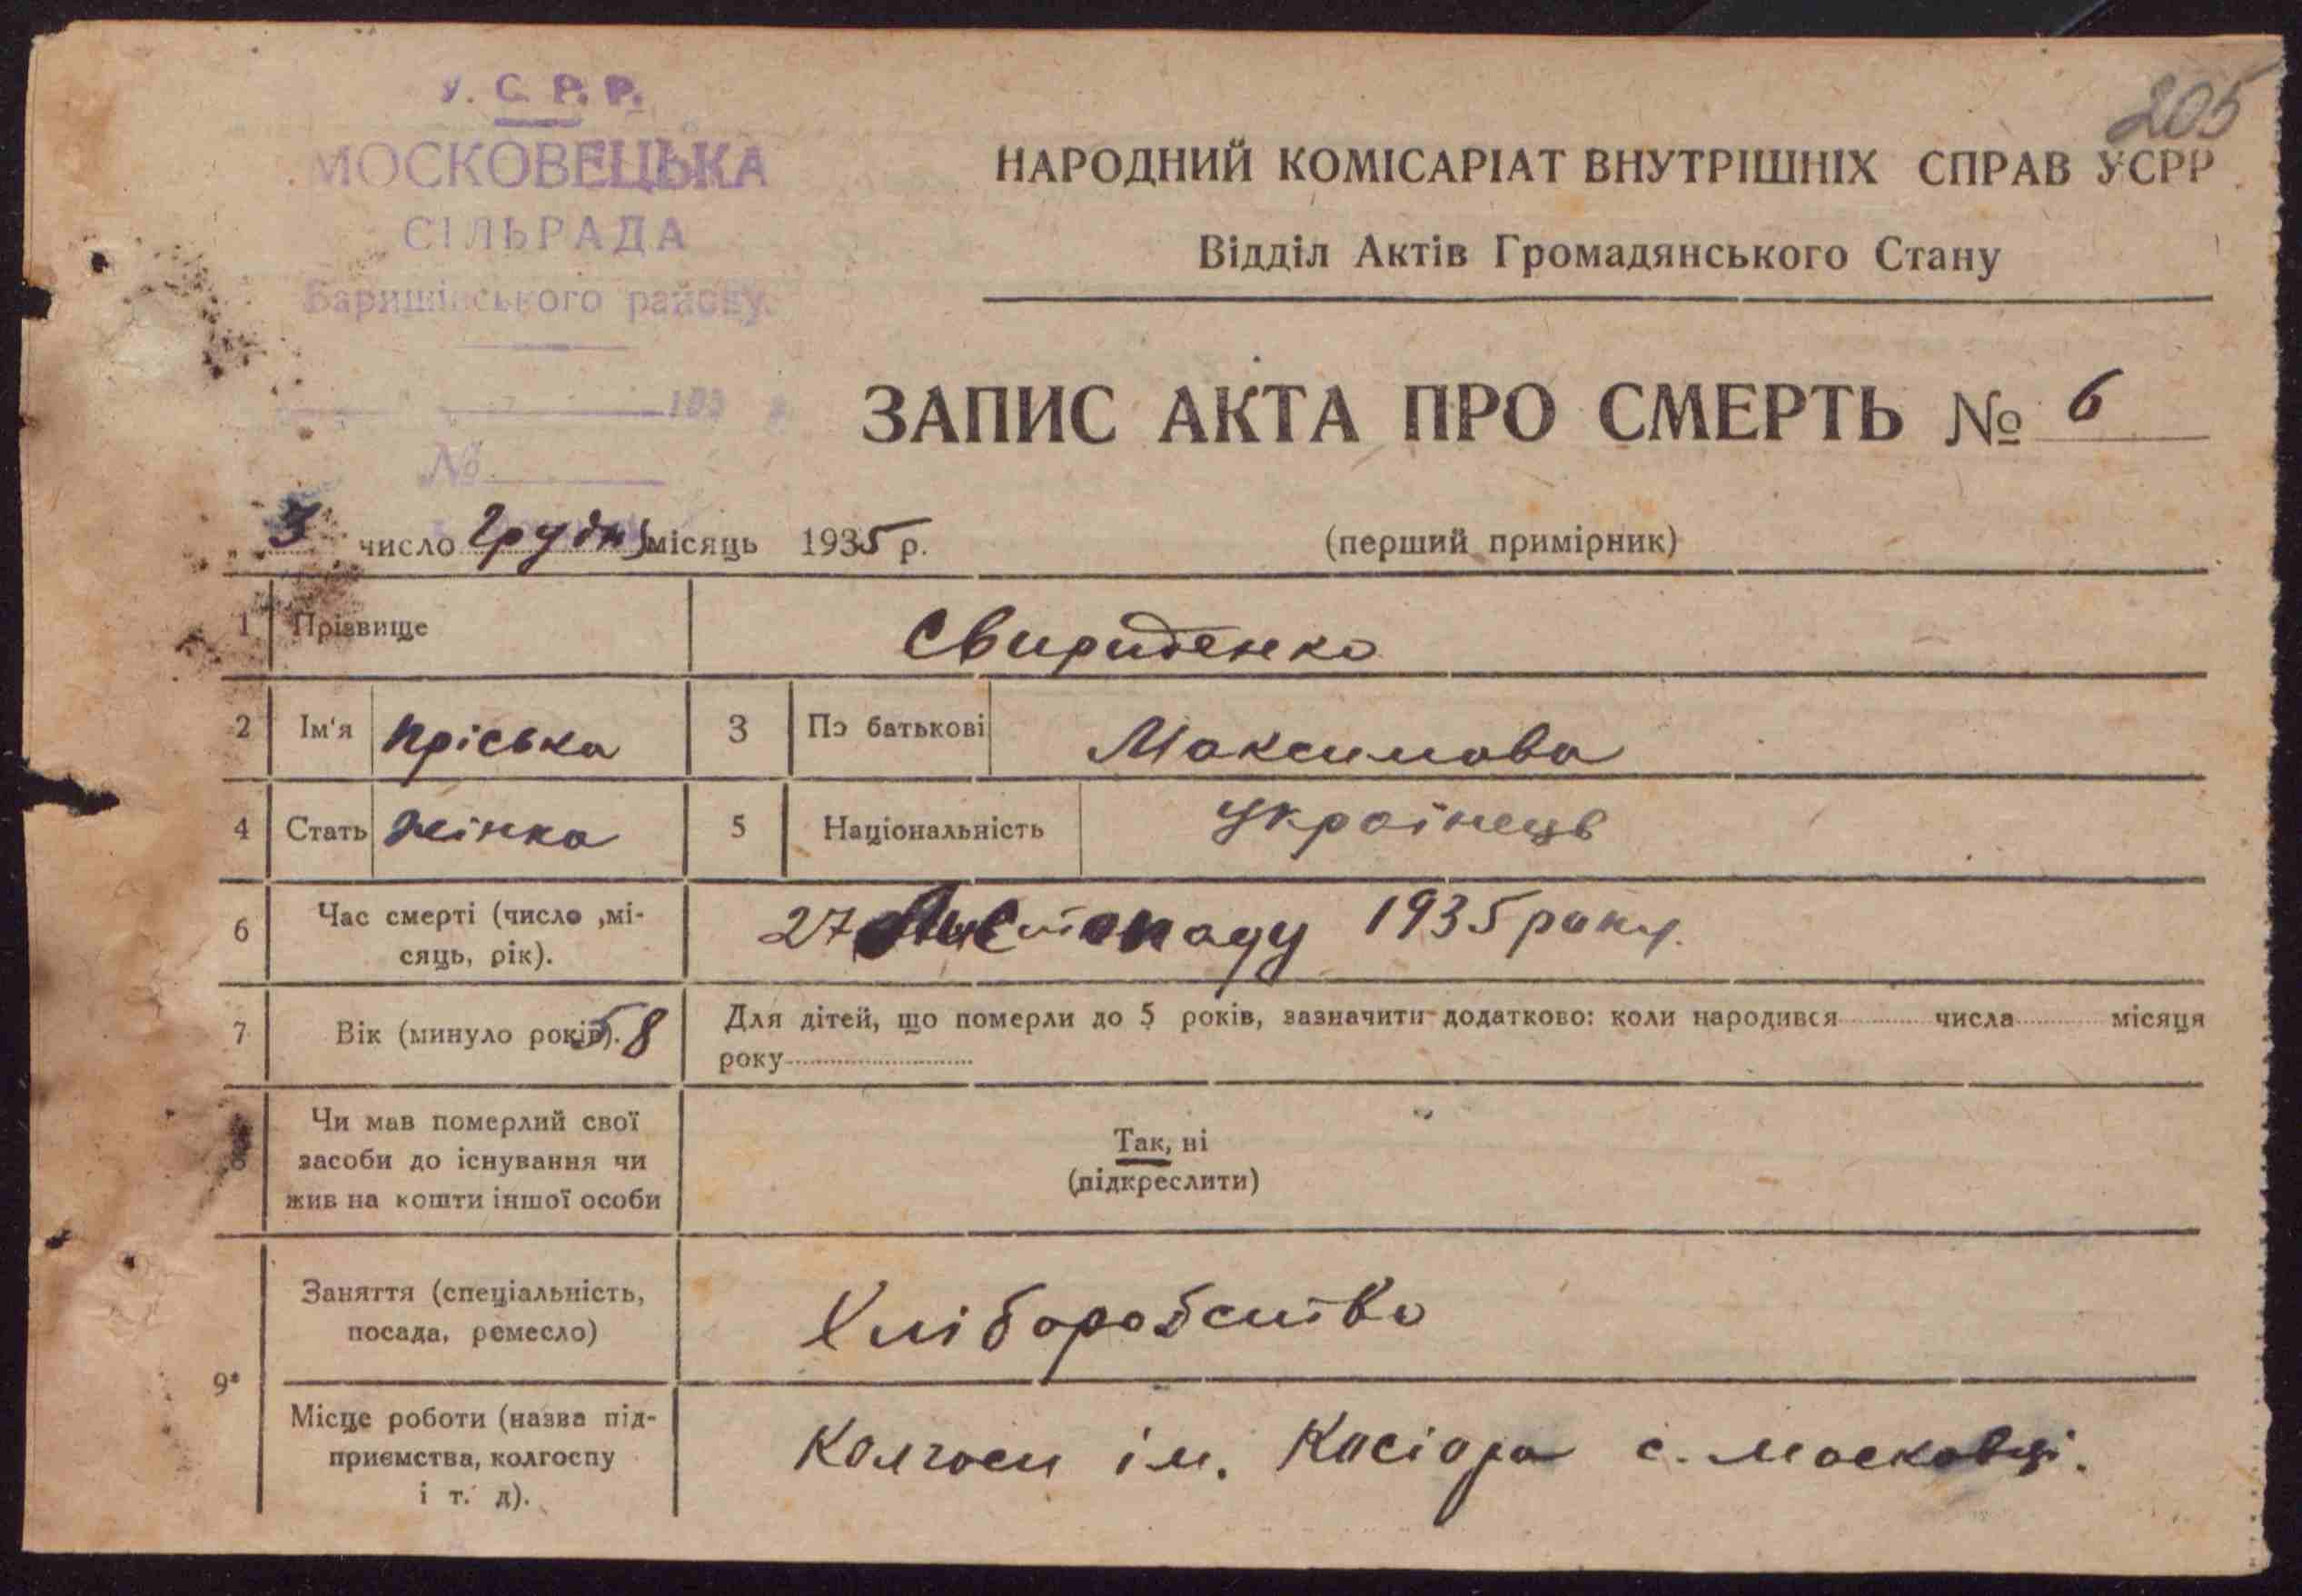 У. С. Р. Р.
МОСКОВЕЦЬКА
СІЛЬРАДА
Баришівського району.
193 р.
№
205
НАРОДНИЙ КОМІСАРІАТ ВНУТРІШНІХ СПРАВ УСРР
Відділ Актів Громадянського Стану
ЗАПИС АКТА ПРО СМЕРТЬ № 6
„ 3 число Грудня місяць 1935 р.
(перший примірник)
1 Прізвище Свириденко
2 Ім'я Пріська 3 По батькові Максимова
4 Стать жінка 5 Національність Українець
6 Час смерті (число ,мі-
сяць, рік).
27 Листопаду 1935 року.
7 Вік (минуло років). 58
Для дітей, що померли до 5 років, зазначити додатково: коли народився числа місяця
року
8 Чи мав померлий свої
засоби до існування чи
жив на кошти іншої особи
Так, ні
(підкреслити)
9* Заняття (спеціальність,
посада, ремесло)
Хліборобство
Місце роботи (назва під-
приємства, колгоспу
і т. д).
Колгосп ім. Косіора с. Московці.